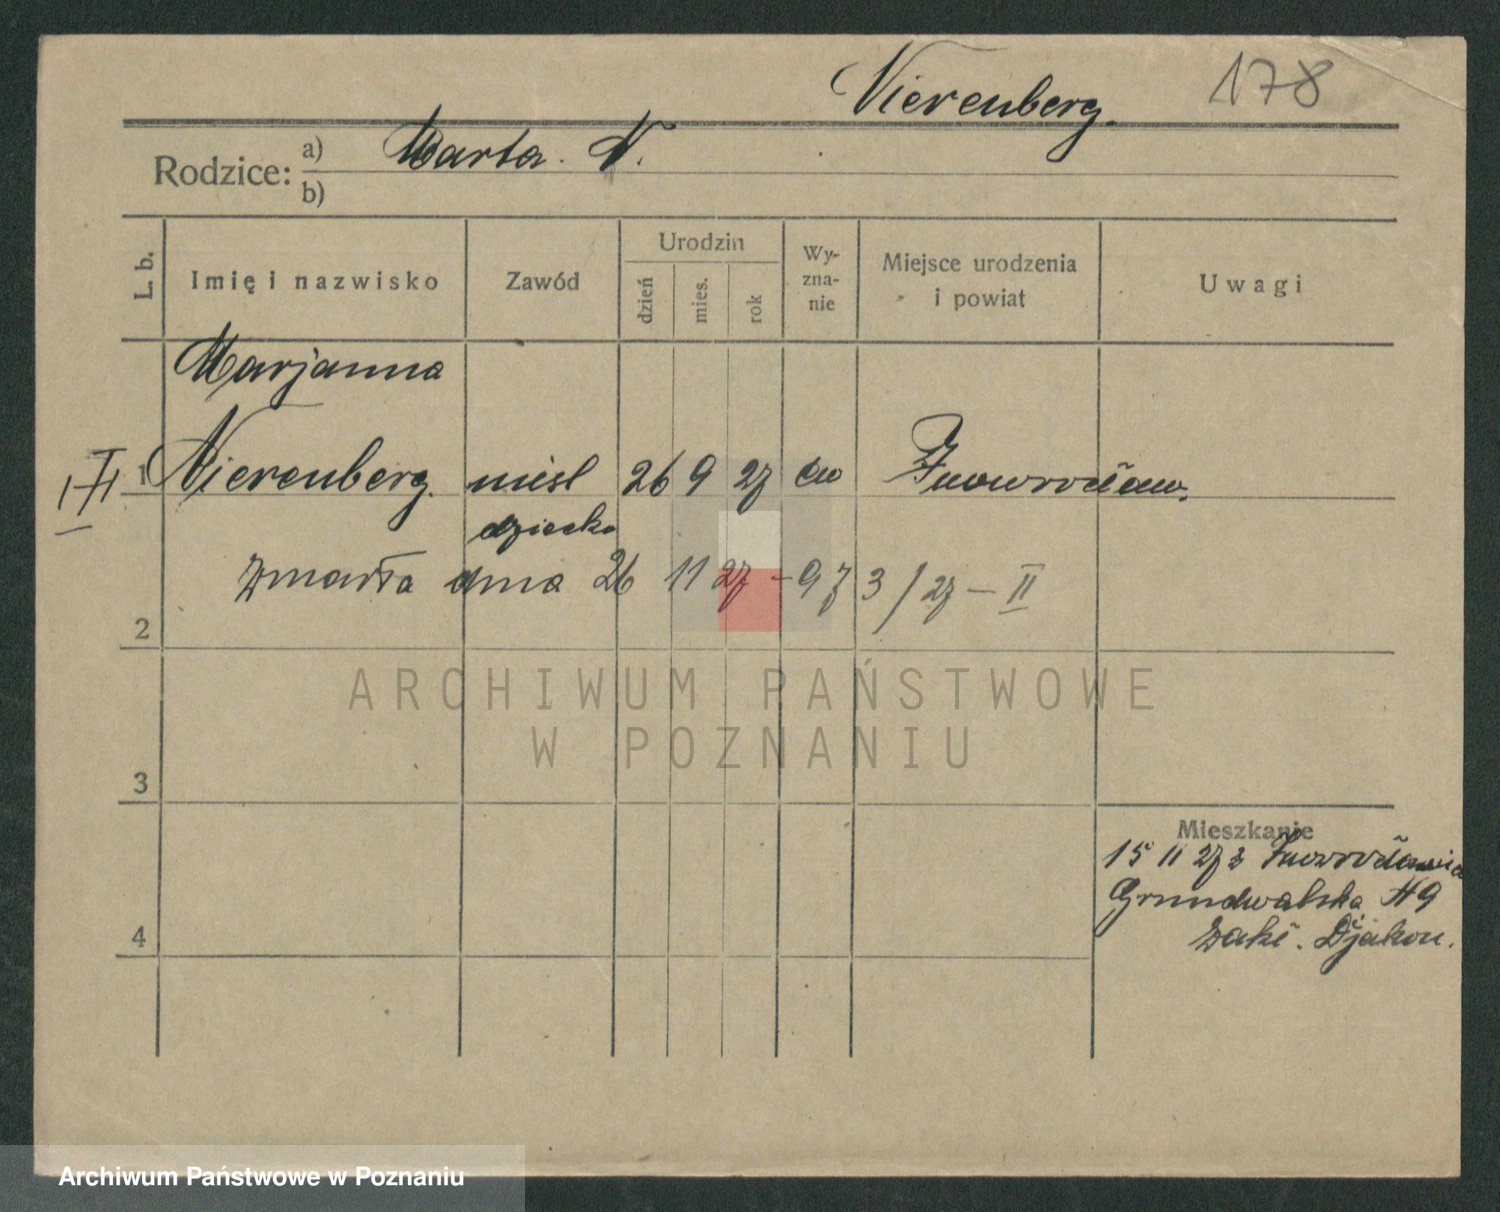 Nierenberg. 178
Rodzice: a) Marta. N.
b)
L. b. Imię i nazwisko Zawód Urodzin dzień mies. rok Wy-zna-nie Miejsce urodzenia i powiat Uwagi
Marjanna
1 Nierenberg. nieśl 26 9 27 ew Inowrocław.
dziecko
zmarła dnia 26 11 27 - 973/27 - II
2
3
4
Mieszkanie
15 11 27 z Inowrocławia
Grunwalska 49
zakł. Djakon.
ARCHIWUM PAŃSTWOWE
W POZNANIU
Archiwum Państwowe w Poznaniu